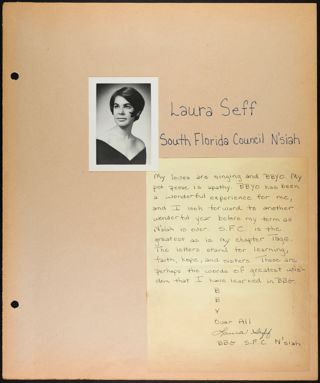 Laura Seff
South Florida Council N'siah
My loves are singing and BBYO. My
pet peeve is apathy. BBYO has been
a wonderful experience for me,
and I look forward to another
wonderful year before my term as
N'siah is over. S.F.C. is the
greatest as is my chapter Tage.
The letters stand for learning,
faith, hope, and sisters. These are
perhaps the words of greatest wis-
dom that I have learned in BBG.
B
B
Y
Over All
Laura Seff
BBG S.F.C N'siah